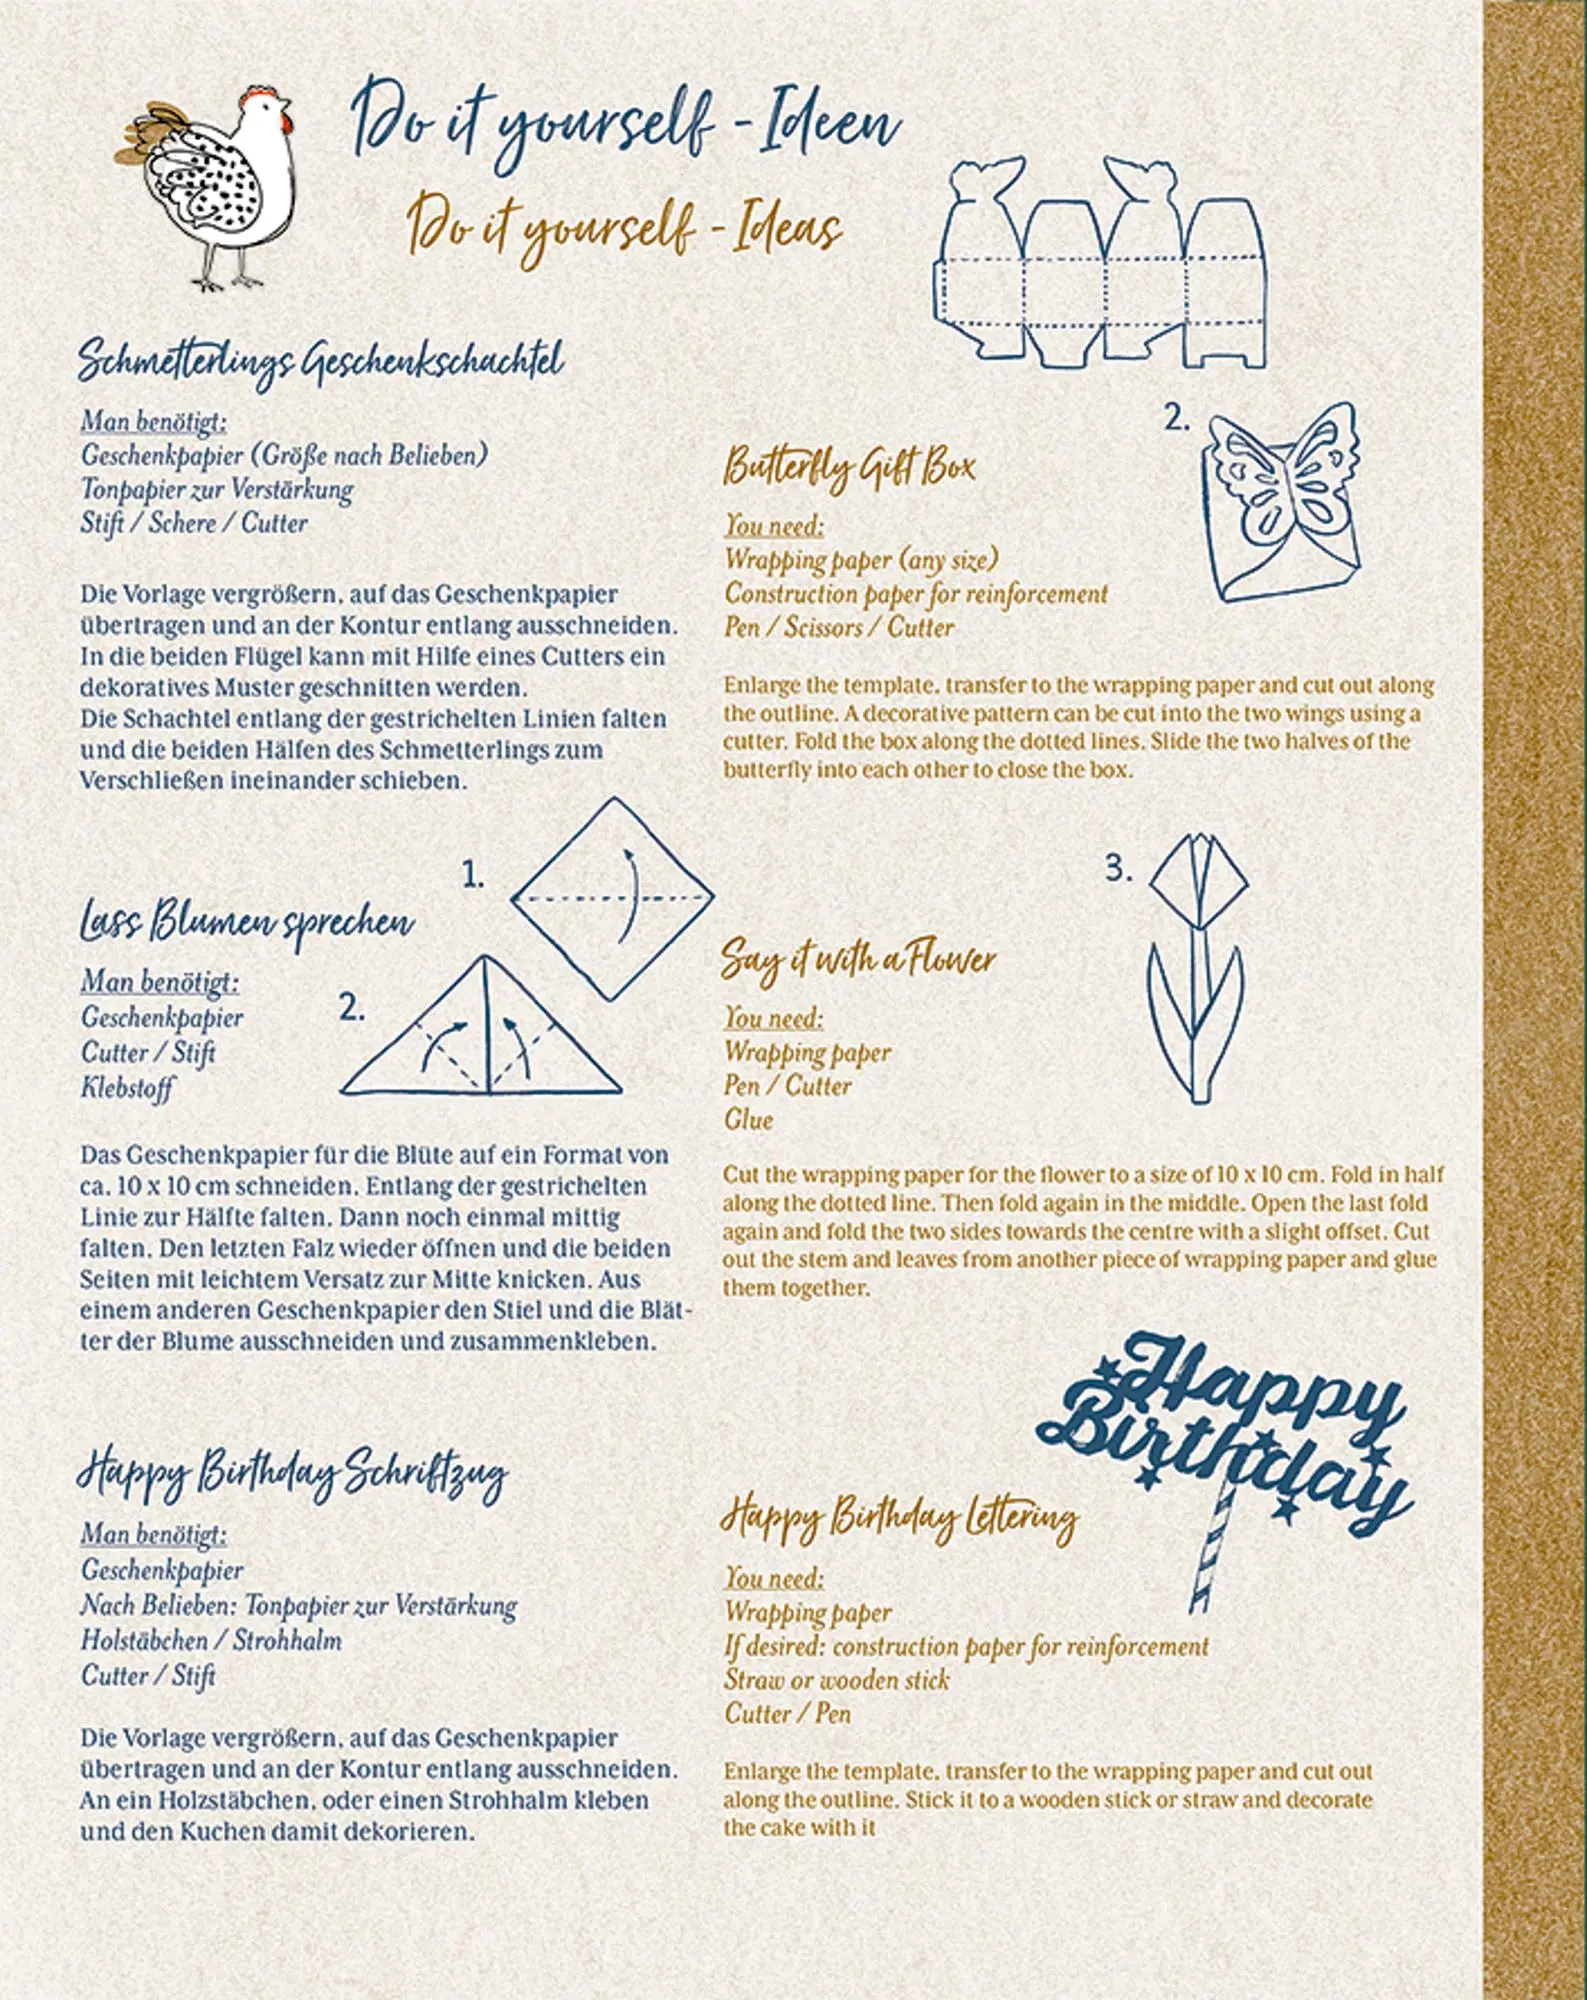 Do it yourself - Ideen
Do it yourself - Ideas
Schmetterlings Geschenkschachtel
Man benötigt:
Geschenkpapier (Größe nach Belieben)
Tonpapier zur Verstärkung
Stift / Schere / Cutter
Die Vorlage vergrößern, auf das Geschenkpapier
übertragen und an der Kontur entlang ausschneiden.
In die beiden Flügel kann mit Hilfe eines Cutters ein
dekoratives Muster geschnitten werden.
Die Schachtel entlang der gestrichelten Linien falten
und die beiden Hälfen des Schmetterlings zum
Verschließen ineinander schieben.
2.
Butterfly Gift Box
You need:
Wrapping paper (any size)
Construction paper for reinforcement
Pen / Scissors / Cutter
Enlarge the template, transfer to the wrapping paper and cut out along
the outline. A decorative pattern can be cut into the two wings using a
cutter. Fold the box along the dotted lines. Slide the two halves of the
butterfly into each other to close the box.
1.
Lass Blumen sprechen
2.
Man benötigt:
Geschenkpapier
Cutter / Stift
Klebstoff
Das Geschenkpapier für die Blüte auf ein Format von
ca. 10 x 10 cm schneiden. Entlang der gestrichelten
Linie zur Hälfte falten. Dann noch einmal mittig
falten. Den letzten Falz wieder öffnen und die beiden
Seiten mit leichtem Versatz zur Mitte knicken. Aus
einem anderen Geschenkpapier den Stiel und die Blät-
ter der Blume ausschneiden und zusammenkleben.
3.
Say it with a Flower
You need:
Wrapping paper
Pen / Cutter
Glue
Cut the wrapping paper for the flower to a size of 10 x 10 cm. Fold in half
along the dotted line. Then fold again in the middle. Open the last fold
again and fold the two sides towards the centre with a slight offset. Cut
out the stem and leaves from another piece of wrapping paper and glue
them together.
Happy Birthday Schriftzug
Man benötigt:
Geschenkpapier
Nach Belieben: Tonpapier zur Verstärkung
Holstäbchen / Strohhalm
Cutter / Stift
Die Vorlage vergrößern, auf das Geschenkpapier
übertragen und an der Kontur entlang ausschneiden.
An ein Holzstäbchen, oder einen Strohhalm kleben
und den Kuchen damit dekorieren.
Happy
Birthday
Happy Birthday Lettering
You need:
Wrapping paper
If desired: construction paper for reinforcement
Straw or wooden stick
Cutter / Pen
Enlarge the template, transfer to the wrapping paper and cut out
along the outline. Stick it to a wooden stick or straw and decorate
the cake with it